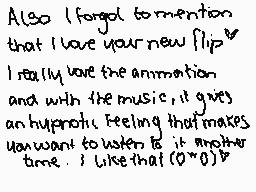 Also I forgot to mention
that I love your new flip♥
I really love the animation
and with the music, it gives
an hypnotic feeling that makes
you want to listen to it another
time. I like that (O*O)♥